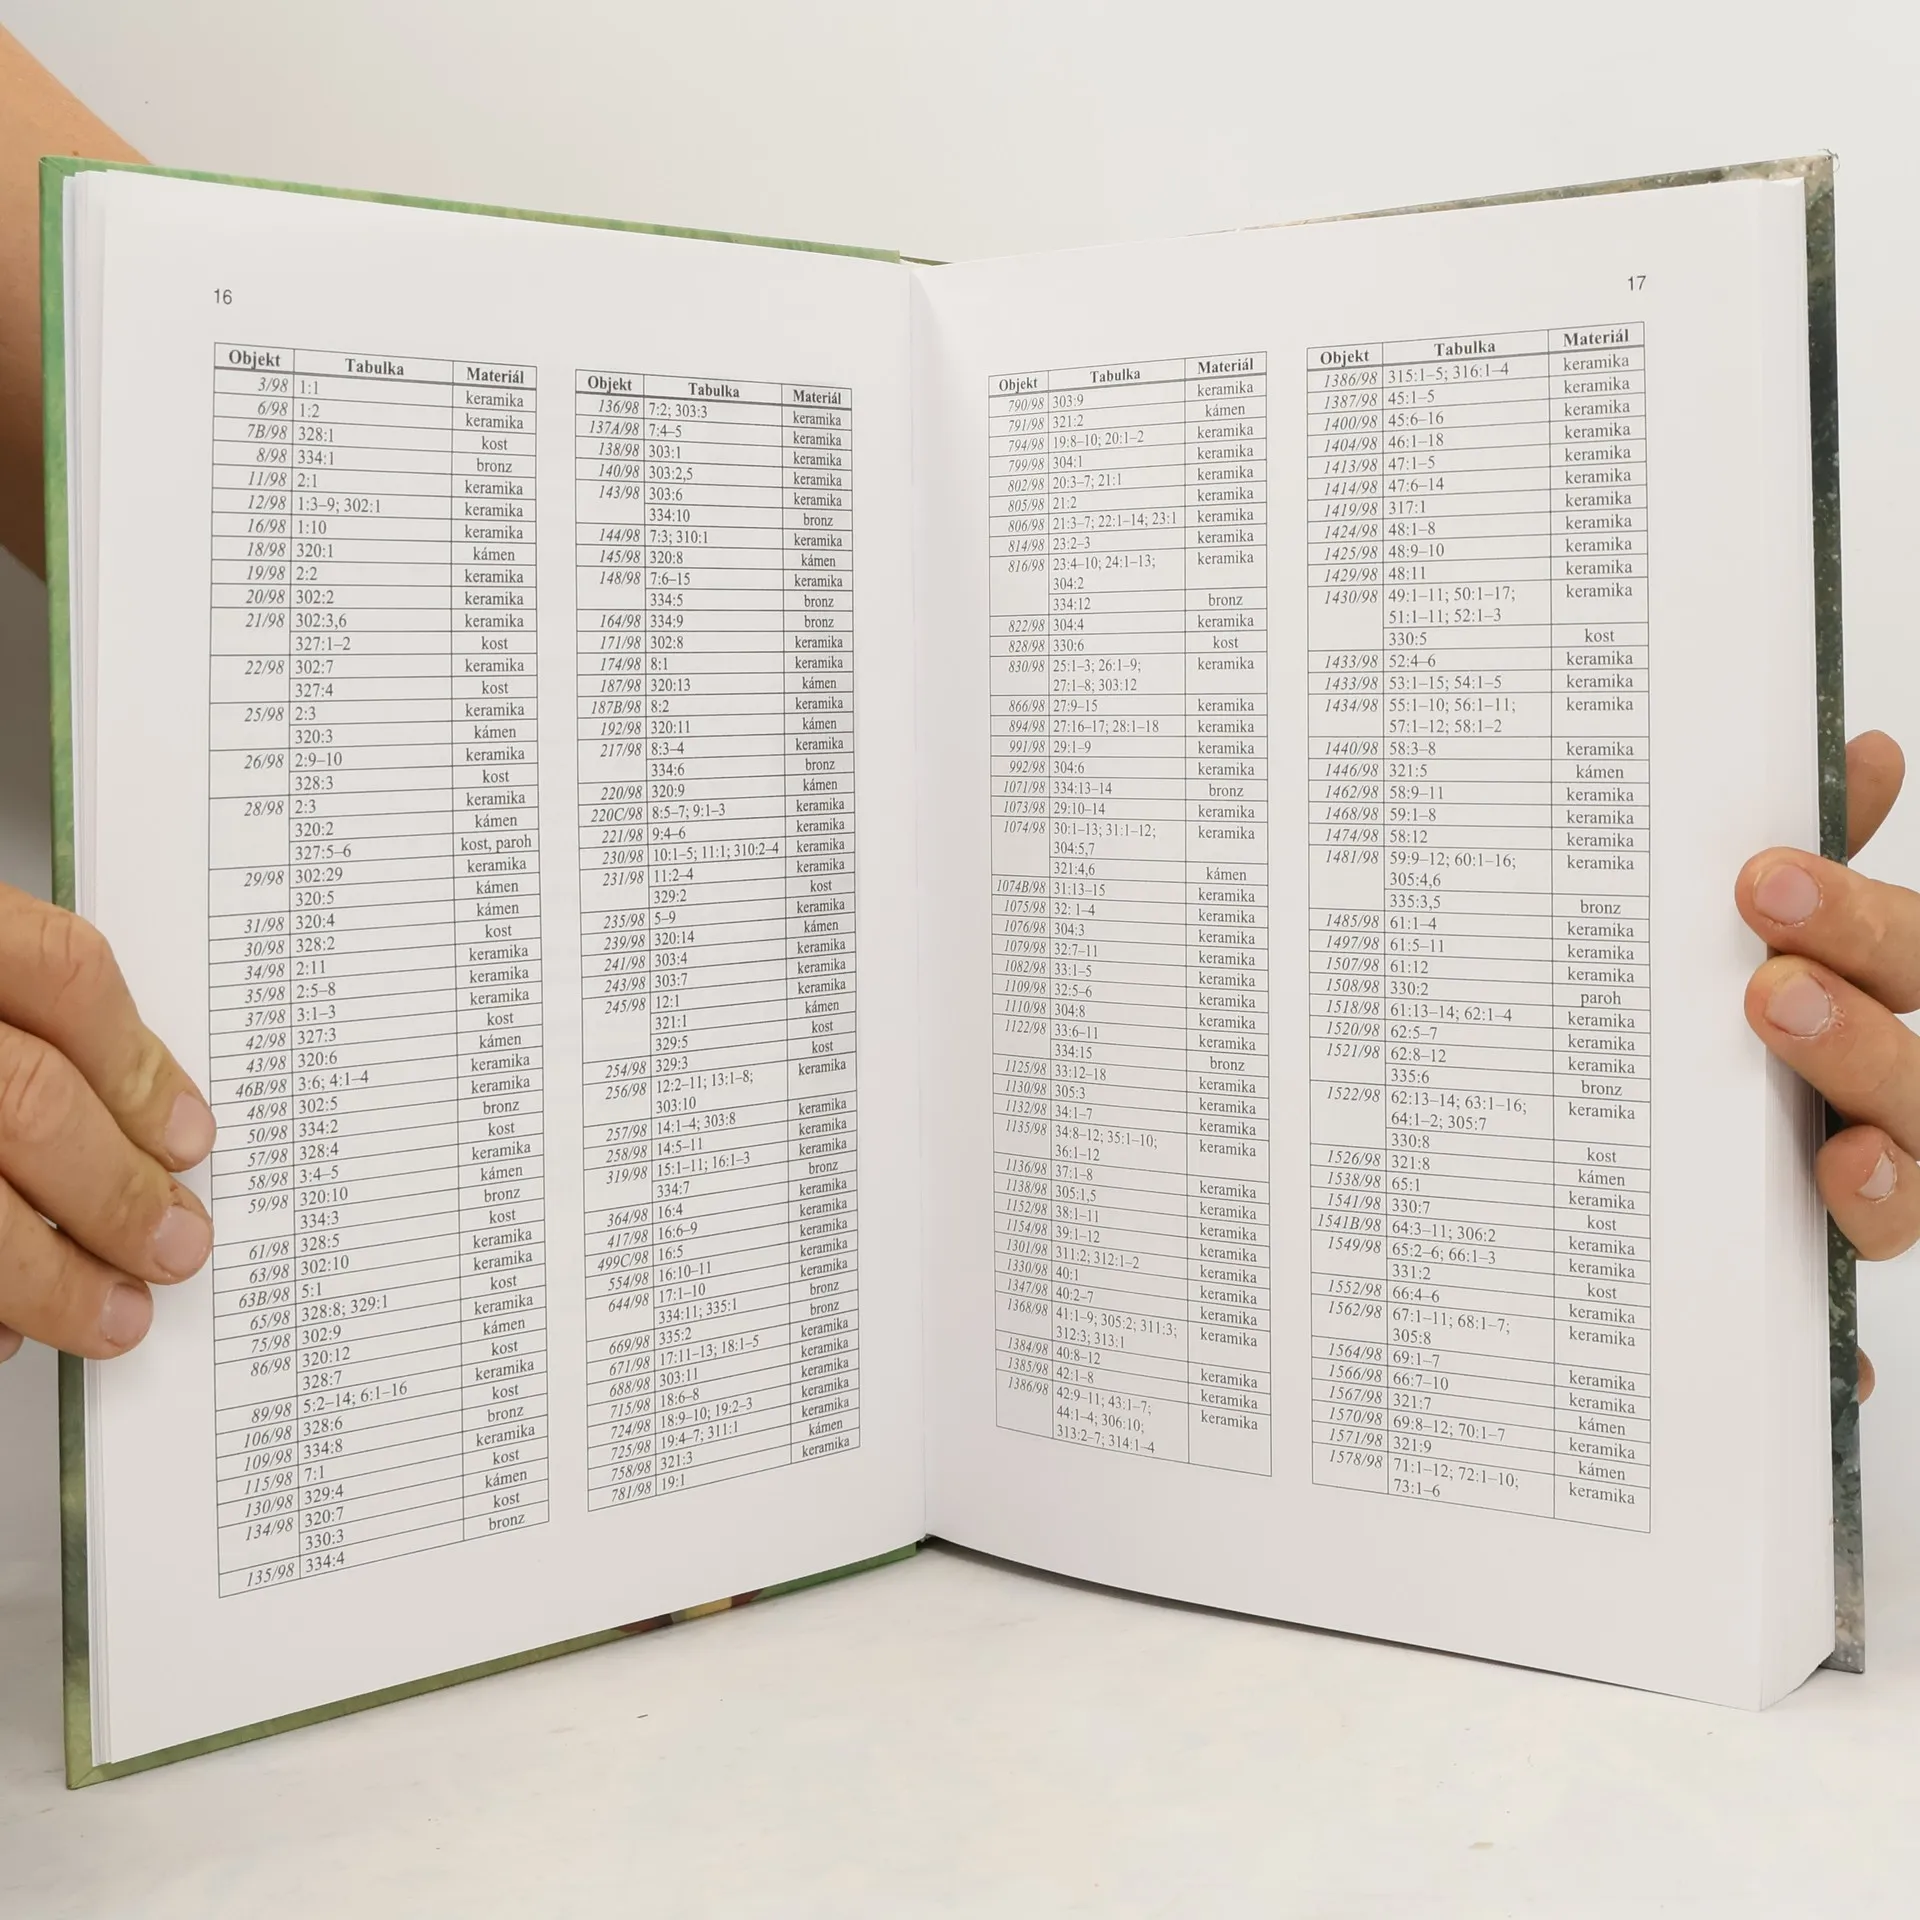 16
Objekt Tabulka Materiál
3/98 1:1 keramika
6/98 1:2 keramika
7B/98 328:1 kost
8/98 334:1 bronz
11/98 2:1 keramika
12/98 1:3–9; 302:1 keramika
16/98 1:10 keramika
18/98 320:1 kámen
19/98 2:2 keramika
20/98 302:2 keramika
21/98 302:3,6 keramika
327:1–2 kost
22/98 302:7 keramika
327:4 kost
25/98 2:3 keramika
320:3 kámen
26/98 2:9–10 keramika
328:3 kost
28/98 2:3 keramika
320:2 kámen
327:5–6 kost, paroh
29/98 302:29 keramika
320:5 kámen
31/98 320:4 kámen
30/98 328:2 kost
34/98 2:11 keramika
35/98 2:5–8 keramika
37/98 3:1–3 keramika
42/98 327:3 kost
43/98 320:6 kámen
46B/98 3:6; 4:1–4 keramika
48/98 302:5 keramika
50/98 334:2 bronz
57/98 328:4 kost
58/98 3:4–5 keramika
59/98 320:10 kámen
334:3 bronz
61/98 328:5 kost
63/98 302:10 keramika
63B/98 5:1 keramika
65/98 328:8; 329:1 kost
75/98 302:9 keramika
86/98 320:12 kámen
328:7 kost
89/98 5:2–14; 6:1–16 keramika
106/98 328:6 kost
109/98 334:8 bronz
115/98 7:1 keramika
130/98 329:4 kost
134/98 320:7 kámen
330:3 kost
135/98 334:4 bronz
Objekt Tabulka Materiál
136/98 7:2; 303:3 keramika
137A/98 7:4–5 keramika
138/98 303:1 keramika
140/98 303:2,5 keramika
143/98 303:6 keramika
334:10 bronz
144/98 7:3; 310:1 keramika
145/98 320:8 kámen
148/98 7:6–15 keramika
334:5 bronz
164/98 334:9 bronz
171/98 302:8 keramika
174/98 8:1 keramika
187/98 320:13 kámen
187B/98 8:2 keramika
192/98 320:11 kámen
217/98 8:3–4 keramika
334:6 bronz
220/98 320:9 kámen
220C/98 8:5–7; 9:1–3 keramika
221/98 9:4–6 keramika
230/98 10:1–5; 11:1; 310:2–4 keramika
231/98 11:2–4 keramika
329:2 kost
235/98 5–9 keramika
239/98 320:14 kámen
241/98 303:4 keramika
243/98 303:7 keramika
245/98 12:1 keramika
321:1 kámen
329:5 kost
254/98 329:3 kost
256/98 12:2–11; 13:1–8; keramika
303:10
257/98 14:1–4; 303:8 keramika
258/98 14:5–11 keramika
319/98 15:1–11; 16:1–3 keramika
334:7 bronz
364/98 16:4 keramika
417/98 16:6–9 keramika
499C/98 16:5 keramika
554/98 16:10–11 keramika
644/98 17:1–10 keramika
334:11; 335:1 bronz
669/98 335:2 bronz
671/98 17:11–13; 18:1–5 keramika
688/98 303:11 keramika
715/98 18:6–8 keramika
724/98 18:9–10; 19:2–3 keramika
725/98 19:4–7; 311:1 keramika
758/98 321:3 kámen
781/98 19:1 keramika
17
Objekt Tabulka Materiál
790/98 303:9 keramika
791/98 321:2 kámen
794/98 19:8–10; 20:1–2 keramika
799/98 304:1 keramika
802/98 20:3–7; 21:1 keramika
805/98 21:2 keramika
806/98 21:3–7; 22:1–14; 23:1 keramika
814/98 23:2–3 keramika
816/98 23:4–10; 24:1–13; keramika
304:2
334:12 bronz
822/98 304:4 keramika
828/98 330:6 kost
830/98 25:1–3; 26:1–9; keramika
27:1–8; 303:12
866/98 27:9–15 keramika
894/98 27:16–17; 28:1–18 keramika
991/98 29:1–9 keramika
992/98 304:6 keramika
1071/98 334:13–14 bronz
1073/98 29:10–14 keramika
1074/98 30:1–13; 31:1–12; keramika
304:5,7
321:4,6 kámen
1074B/98 31:13–15 keramika
1075/98 32: 1–4 keramika
1076/98 304:3 keramika
1079/98 32:7–11 keramika
1082/98 33:1–5 keramika
1109/98 32:5–6 keramika
1110/98 304:8 keramika
1122/98 33:6–11 keramika
334:15 bronz
1125/98 33:12–18 keramika
1130/98 305:3 keramika
1132/98 34:1–7 keramika
1135/98 34:8–12; 35:1–10; keramika
36:1–12
1136/98 37:1–8 keramika
1138/98 305:1,5 keramika
1152/98 38:1–11 keramika
1154/98 39:1–12 keramika
1301/98 311:2; 312:1–2 keramika
1330/98 40:1 keramika
1347/98 40:2–7 keramika
1368/98 41:1–9; 305:2; 311:3; keramika
312:3; 313:1
1384/98 40:8–12 keramika
1385/98 42:1–8 keramika
1386/98 42:9–11; 43:1–7; keramika
44:1–4; 306:10;
313:2–7; 314:1–4
Objekt Tabulka Materiál
1386/98 315:1–5; 316:1–4 keramika
1387/98 45:1–5 keramika
1400/98 45:6–16 keramika
1404/98 46:1–18 keramika
1413/98 47:1–5 keramika
1414/98 47:6–14 keramika
1419/98 317:1 keramika
1424/98 48:1–8 keramika
1425/98 48:9–10 keramika
1429/98 48:11 keramika
1430/98 49:1–11; 50:1–17; keramika
51:1–11; 52:1–3
330:5 kost
1433/98 52:4–6 keramika
1433/98 53:1–15; 54:1–5 keramika
1434/98 55:1–10; 56:1–11; keramika
57:1–12; 58:1–2
1440/98 58:3–8 keramika
1446/98 321:5 kámen
1462/98 58:9–11 keramika
1468/98 59:1–8 keramika
1474/98 58:12 keramika
1481/98 59:9–12; 60:1–16; keramika
305:4,6
335:3,5 bronz
1485/98 61:1–4 keramika
1497/98 61:5–11 keramika
1507/98 61:12 keramika
1508/98 330:2 paroh
1518/98 61:13–14; 62:1–4 keramika
1520/98 62:5–7 keramika
1521/98 62:8–12 keramika
335:6 bronz
1522/98 62:13–14; 63:1–16; keramika
64:1–2; 305:7
330:8 kost
1526/98 321:8 kámen
1538/98 65:1 keramika
1541/98 330:7 kost
1541B/98 64:3–11; 306:2 keramika
1549/98 65:2–6; 66:1–3 keramika
331:2 kost
1552/98 66:4–6 keramika
1562/98 67:1–11; 68:1–7; keramika
305:8
1564/98 69:1–7 keramika
1566/98 66:7–10 keramika
1567/98 321:7 kámen
1570/98 69:8–12; 70:1–7 keramika
1571/98 321:9 kámen
1578/98 71:1–12; 72:1–10; keramika
73:1–6